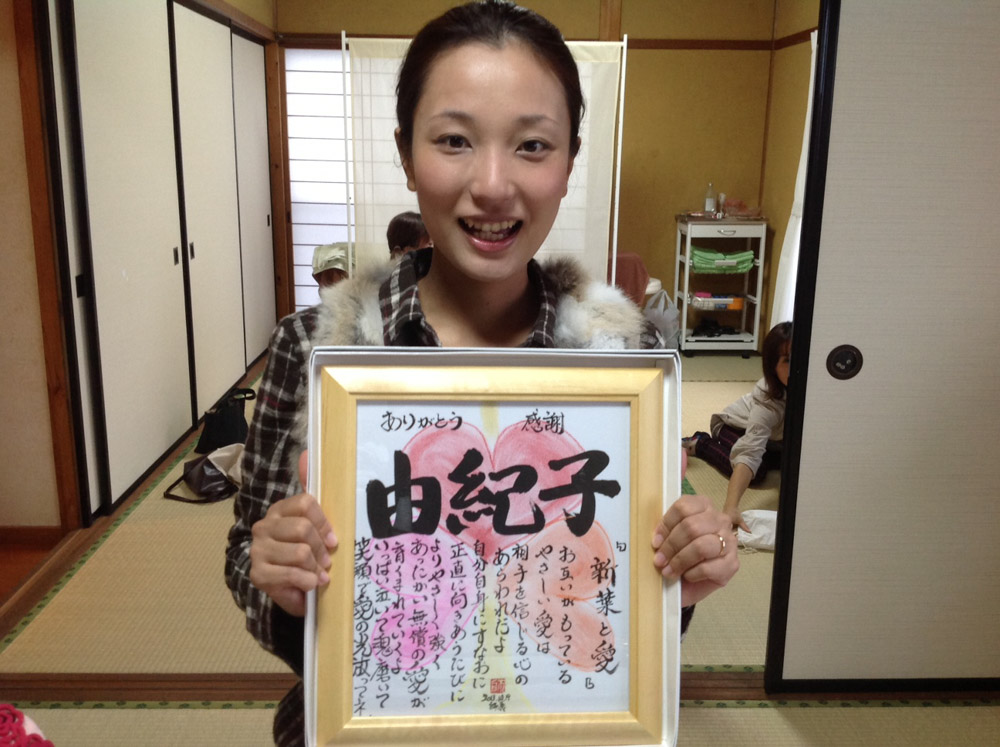 ありがとう
感謝
由紀子
「新葉と愛」
お互いがもっている
やさしい愛は
相手を信じる心の
あらわれだよ
自分自身にすなおに
正直に向きあうたびに
よりやさしく強く
あったかい無償の愛が
育くまれていくよ
いっぱい泣いて魂磨いて
笑顔で愛の光放ってネ